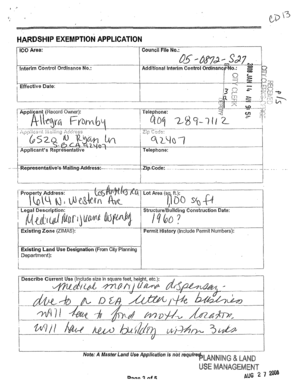 CD13
HARDSHIP EXEMPTION APPLICATION
ICO Area:
Council File No.:
05-0872-S27
Interim Control Ordinance No.:
Additional Interim Control Ordinance No.:
Effective Date:
CITY CLERK
Applicant (Record Owner):
Allegra Fromby
Telephone:
909 289-7112
Applicant's Mailing Address
6528 N Ryan Ln
S.B. CA 92407
Zip Code:
92407
Applicant's Representative
Telephone:
Representative's Mailing Address:
Zip Code:
Property Address: Los Angeles
1614 N. Western Ave
Lot Area (sq. ft.):
1100 sq ft
Legal Description:
Medical Marijuana Dispensary
Structure/Building Construction Date:
1960?
Existing Zone (ZIMAS):
Permit History (Include Permit Numbers):
Existing Land Use Designation (From City Planning
Department):
Describe Current Use (Include size in square feet, height, etc.):
medical marijuana dispensary.
due to a DEA letter, the business
will have to find another location.
Will have new building within 3 wks
Note: A Master Land Use Application is not required
PLANNING & LAND
USE MANAGEMENT
AUG 27 2008
Page 2 of 5